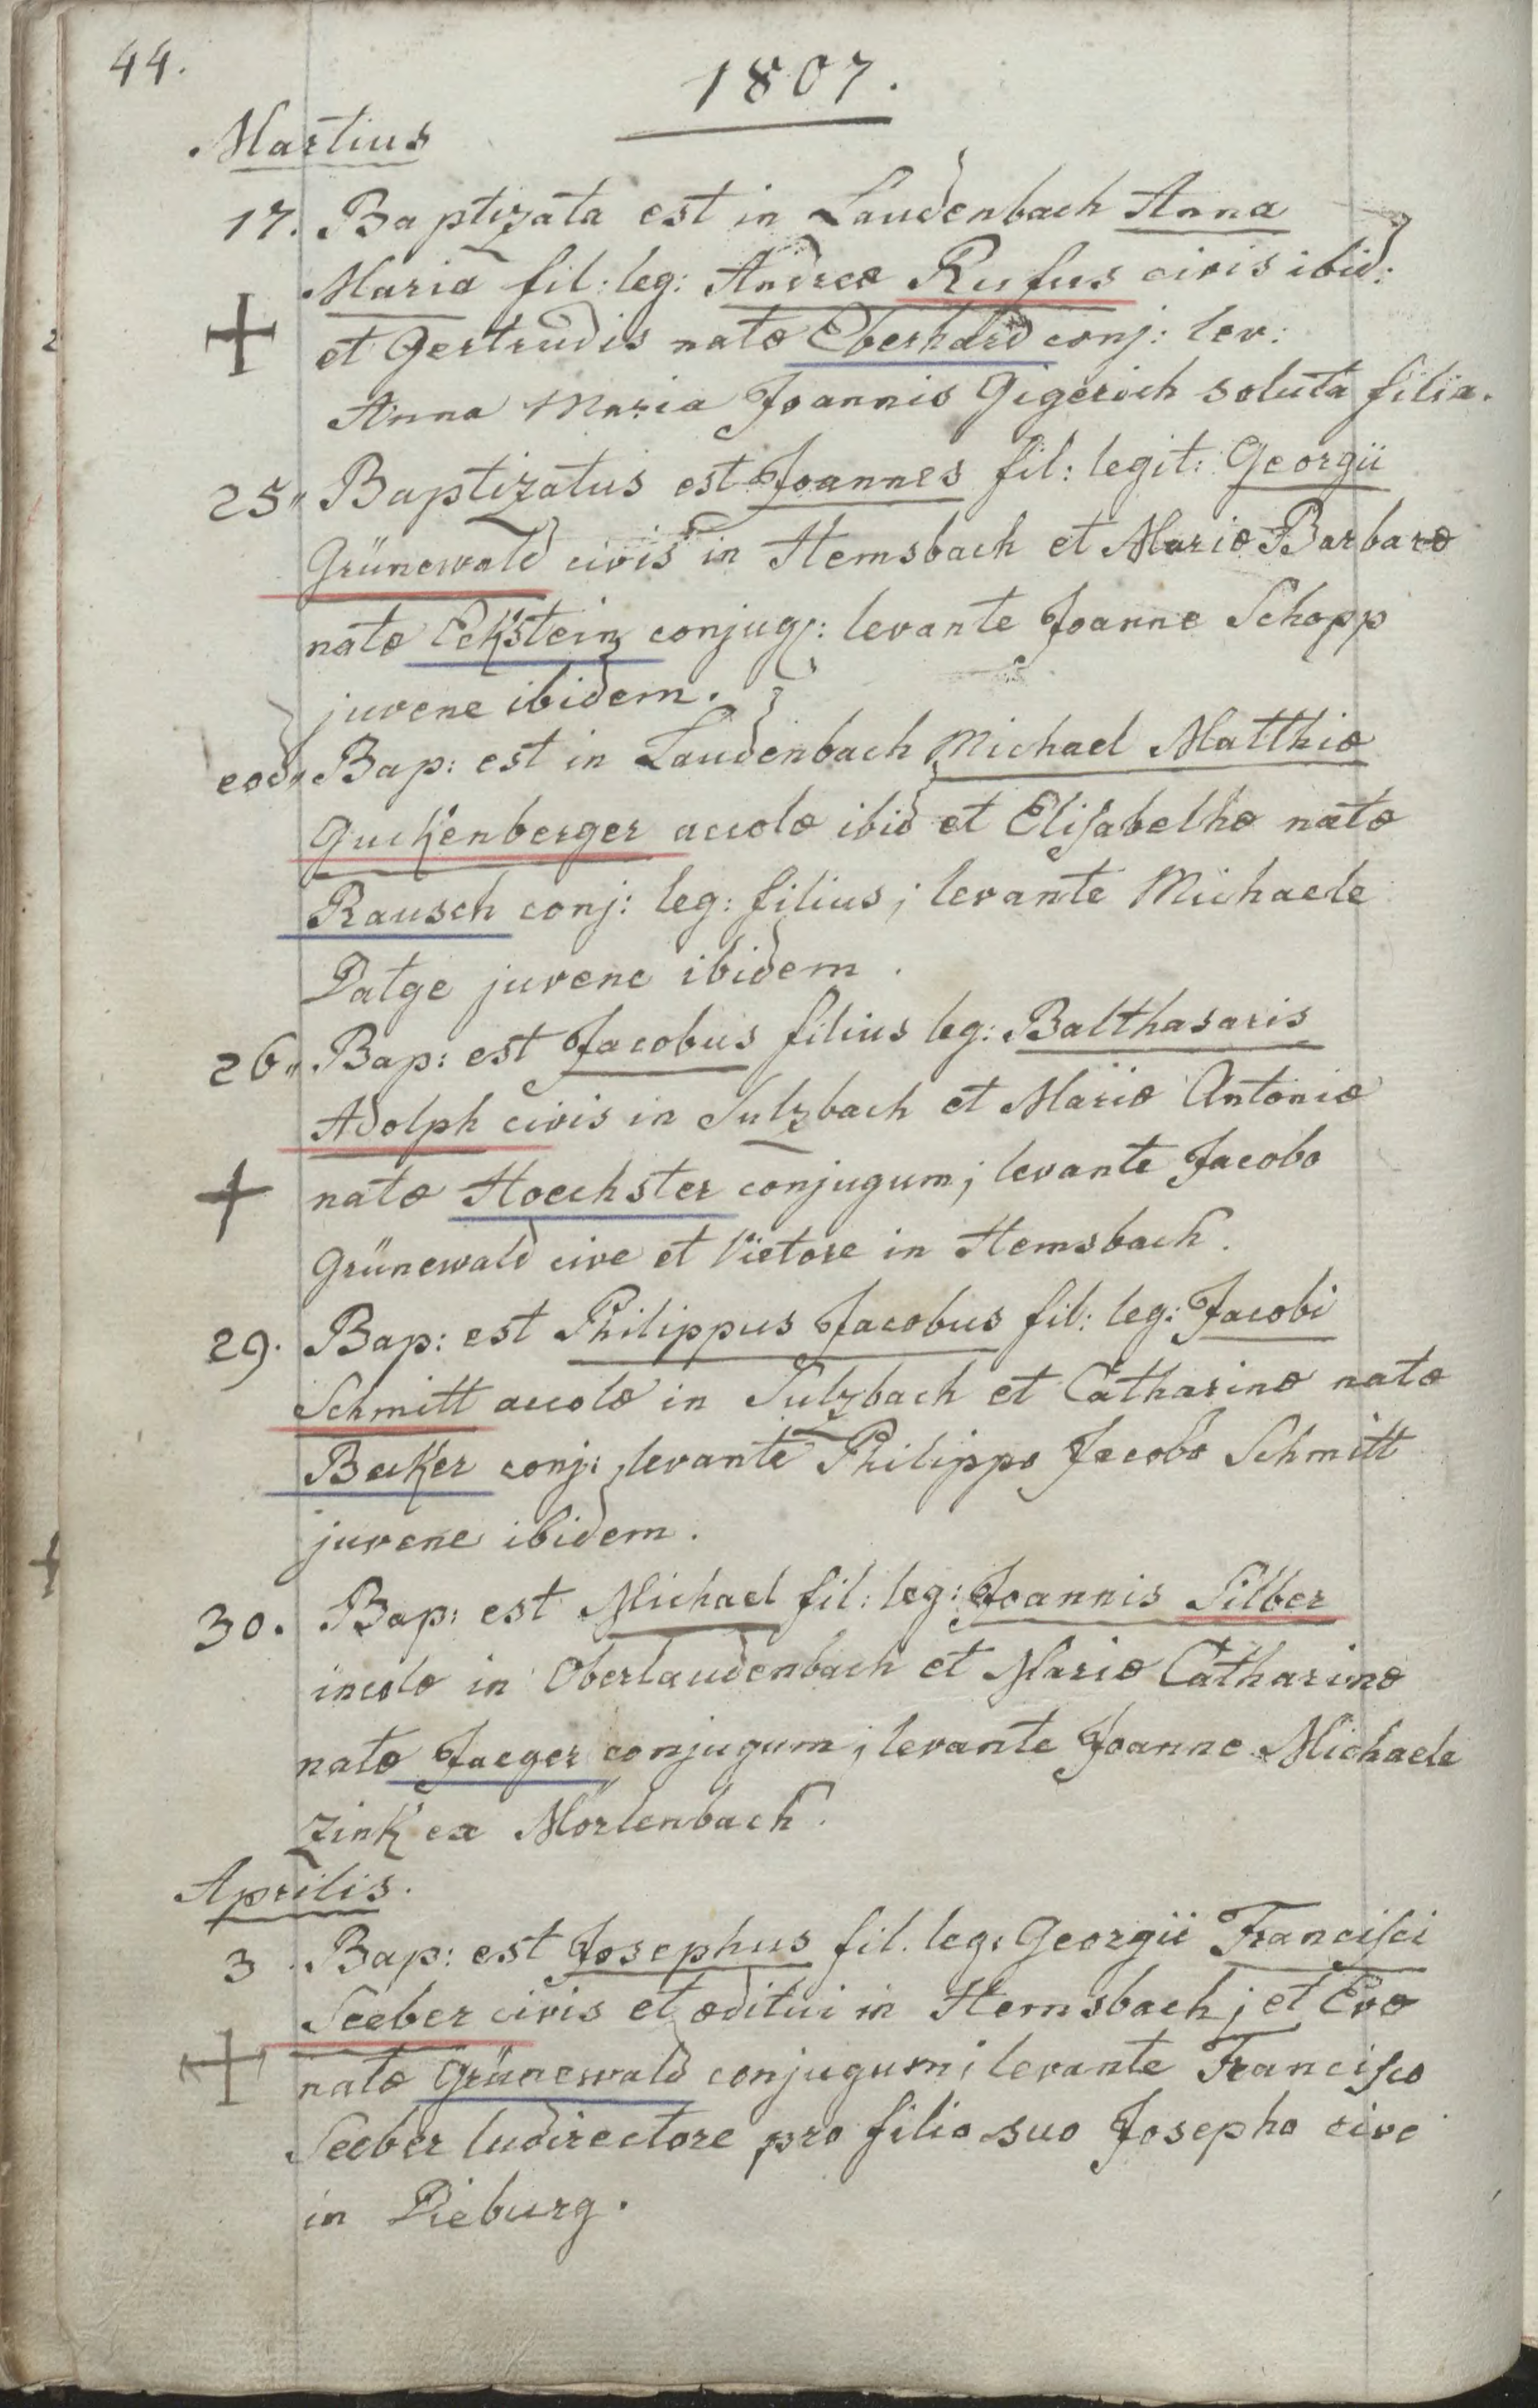 44.
1807.
Martius
17. Baptizata est in Laudenbach Anna
Maria fil: leg: Andreæ Rufus civis ibid:
et Gertrudis natæ Eberhard conj: lev:
Anna Maria Joannis Gigerich soluta filia.
25" Baptizatus est Joannes fil: legit: Georgii
Grünewald civis in Hemsbach et Mariæ Barbaræ
natæ Eckstein conjug: levante Joanne Schopp
juvene ibidem.
eod" Bap: est in Laudenbach Michael Matthiæ
Guckenberger accolæ ibid et Elisabethæ natæ
Rausch conj: leg: filius; levante Michaele
Datge juvene ibidem.
26" Bap: est Jacobus filius leg: Balthasaris
Adolph civis in Sulzbach et Mariæ Antoniæ
natæ Hoechster conjugum; levante Jacobo
Grünewald cive et Vietore in Hemsbach.
29. Bap: est Philippus Jacobus fil: leg: Jacobi
Schmitt accolæ in Sulzbach et Catharinæ natæ
Becker conj: levante Philippo Jacobo Schmitt
juvene ibidem.
30. Bap: est Michael fil: leg: Joannis Silber
incolæ in Oberlaudenbach et Mariæ Catharinæ
natæ Jaeger conjugum; levante Joanne Michaele
Zink ex Mörlenbach.
Aprilis.
3 Bap: est Josephus fil. leg: Georgii Francisci
Seeber civis et æditui in Hemsbach; et Evæ
natæ Grünewald conjugum; levante Francisco
Seeber ludirectore pro filio suo Josepho cive
in Dieburg.